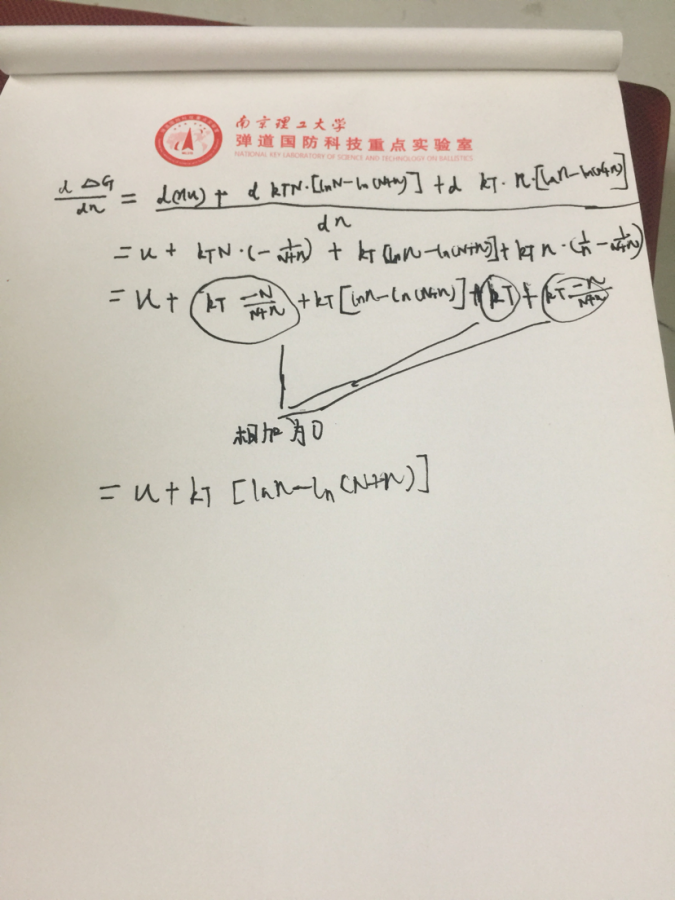 南京理工大学
弹道国防科技重点实验室
NATIONAL KEY LABORATORY OF SCIENCE AND TECHNOLOGY ON BALLISTICS
d ΔG / dn = d(nu) + d kTN·[lnN-ln(N+n)] + d kT·n·[lnn-ln(N+n)] / dn
= u + kTN·(-1/(N+n)) + kT[lnn-ln(N+n)] + kTn·(1/n - 1/(N+n))
= u + kT -N/(N+n) + kT[lnn-ln(N+n)] + kT + kT -n/(N+n)
相加为0
= u + kT [lnn-ln(N+n)]